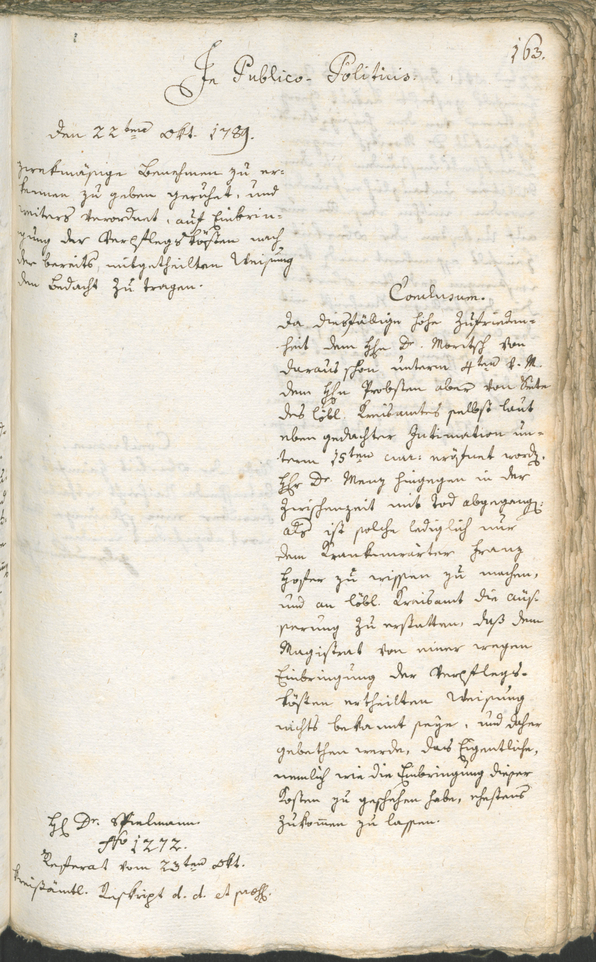 163.
In Publico-Politicis.
den 22ten Okt. 1789.
zwekmäsige Benehmen zu er-
kennen zu geben geruhet, und
weiters verordnet, auf Einbrin-
gung der Verpflegskösten nach
der bereits mitgetheilten Weisung
den Bedacht zu tragen.
Conclusum.
Da diesfällige hohe Zufrieden-
heit dem Hhn Dr. Moritsch von
daraus schon unterm 4ten v. M.
dem Hhn Probsten aber von Seite
des löbl. Kreisamtes selbst laut
eben gedachter Intimation un-
term 15ten cur: eröfnet word.
Hhr Dr. Menz hingegen in der
Zwischenzeit mit Tod abgegang:
als ist solche lediglich nur
dem Krankenwärter Franz
Hofer zu wissen zu machen,
und an löbl. Kreisamt die Aüs-
serung zu erstatten, daß dem
Magistrat von einer wegen
Einbringung der Verpflegs-
kösten ertheilten Weisung
nichts bekannt seye, und daher
gebethen werde, das Eigentliche,
nemlich wie die Einbringung dieser
Kosten zu geschehen habe, ehestens
zukommen zu lassen.
H Dr. Spielmann
Nro 1272.
Referat vom 23ten Okt.
kreisämtl. Reskript d. d. et